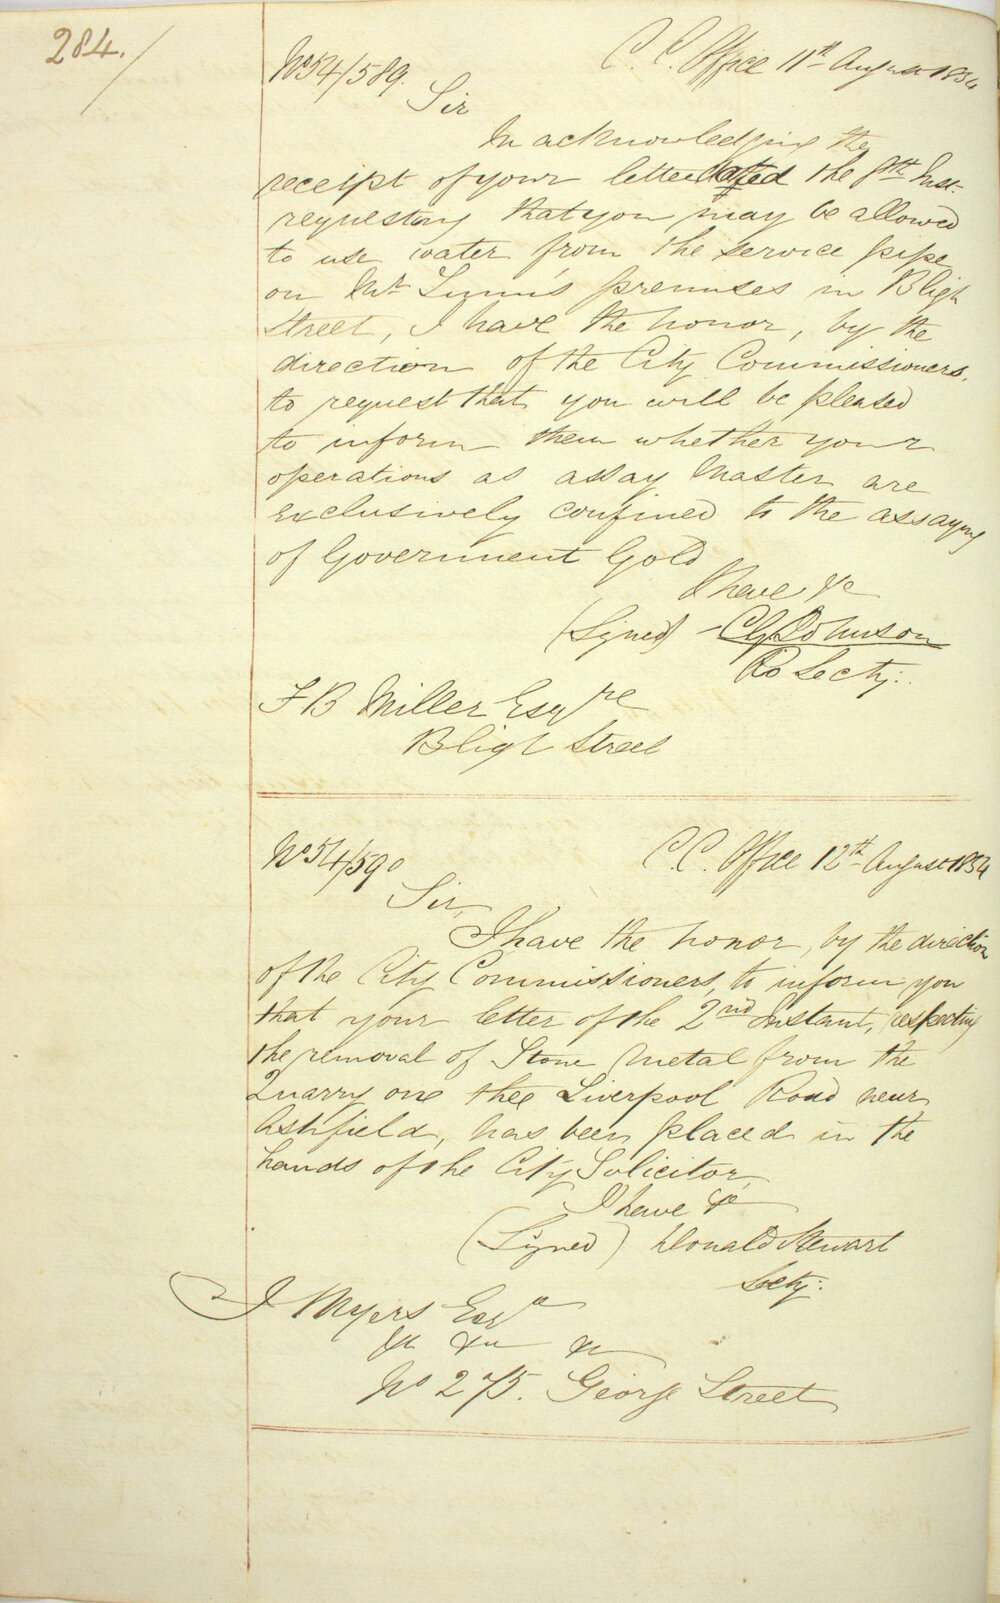 284.
No 54/589.
C. C. Office 11th August 1854
Sir
In acknowledging the
receipt of your letter dated the 9th Inst.
requesting that you may be allowed
to use water from the service pipe
on Mr premises in Bligh
Street, I have the honor, by the
direction of the City Commissioners,
to request that you will be pleased
to inform them whether your
operations as assay Master are
exclusively confined to the assaying
of Government Gold
I have &c
(Signed) Johnson
Pro Secty:
F B Miller Esqre
Bligh Street
No 54/590
C. C. Office 12th August 1854
Sir,
I have the honor, by the direction
of the City Commissioners, to inform you
that your letter of the 2nd Instant, respecting
the removal of Stone Metal from the
Quarry one thee Liverpool Road near
Ashfield, has been placed in the
hands of the City Solicitor,
I have &c
(Signed) Donald Stewart
Secty:
J Myers Esqre
&c &c &c
No 275. George Street